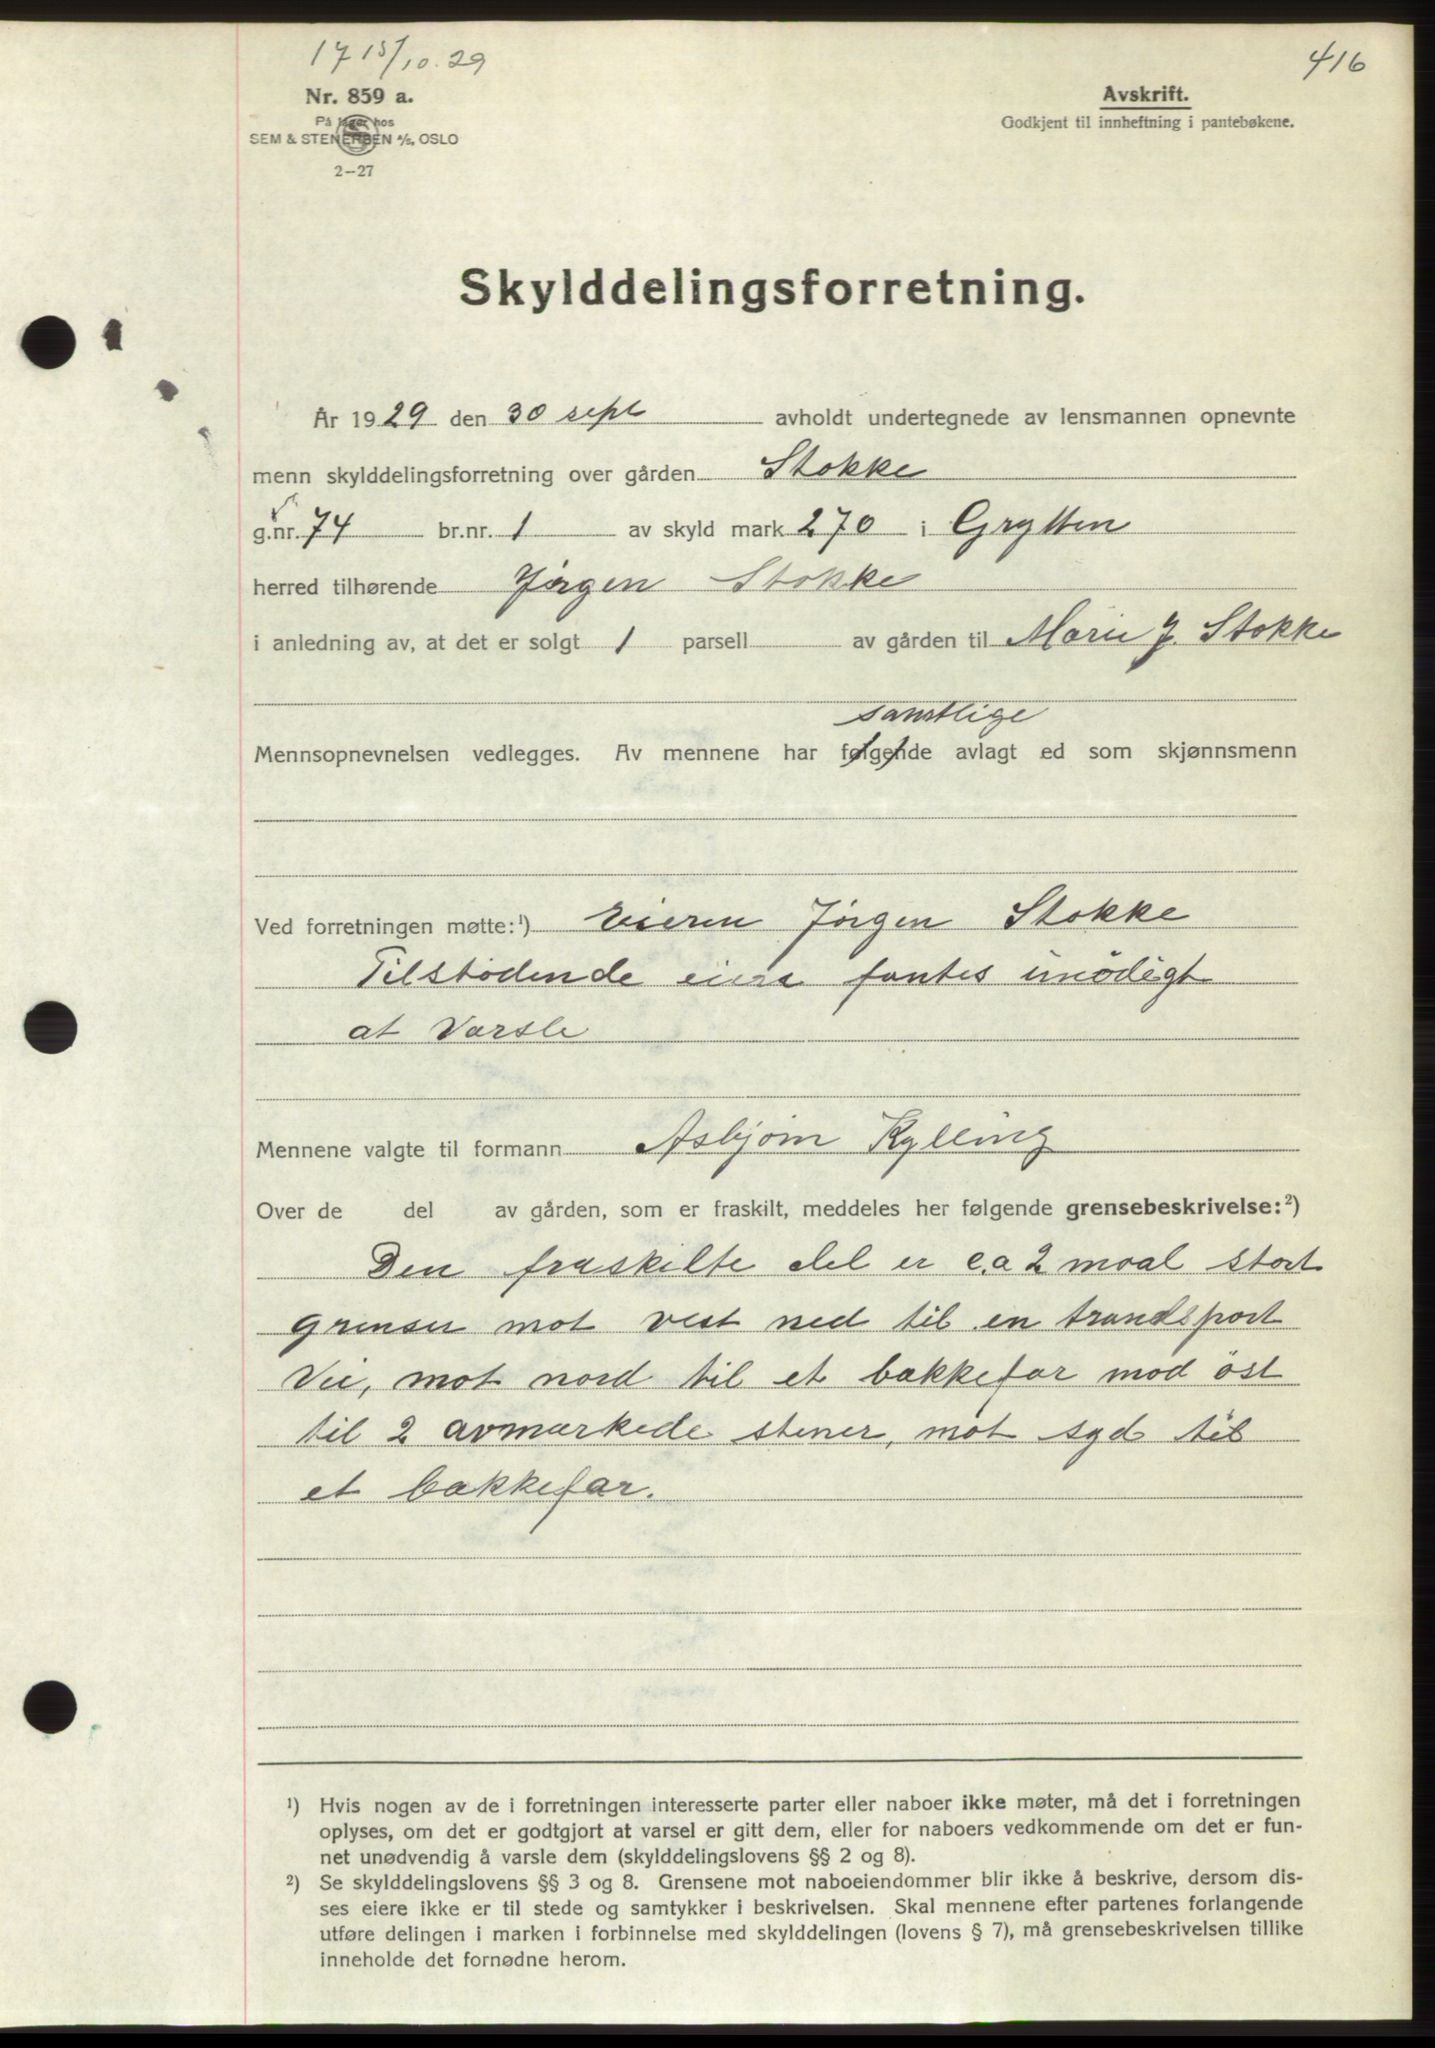 17 15/10.29
416
Nr. 859 a.
På lager hos
SEM & STENERSEN A/S, OSLO
2-27
Avskrift.
Godkjent til innheftning i pantebøkene.
Skylddelingsforretning.
År 1929 den 30 sept avholdt undertegnede av lensmannen opnevnte
menn skylddelingsforretning over gården Stokke
g.nr. 74 br.nr. 1 av skyld mark 270 i Grytten
herred tilhørende Jörgen Stokke
i anledning av, at det er solgt 1 parsell av gården til Marie J. Stokke
samtlige
Mennsopnevnelsen vedlegges. Av mennene har følgende avlagt ed som skjønnsmenn
Ved forretningen møtte:¹) Eieren Jörgen Stokke
Tilstödende eiere fantes unödigt
at Varsle
Mennene valgte til formann Asbjörn Kylling
Over de del av gården, som er fraskilt, meddeles her følgende grensebeskrivelse:²)
Den fraskilte del er c.a 2 maal stort
grenser mot vest ned til en trandsport
Vei, mot nord til et bakkefar mod öst
til 2 avmerkede stener, mot syd til
et bakkefar.
¹) Hvis nogen av de i forretningen interesserte parter eller naboer ikke møter, må det i forretningen
oplyses, om det er godtgjort at varsel er gitt dem, eller for naboers vedkommende om det er fun-
net unødvendig å varsle dem (skylddelingslovens §§ 2 og 8).
²) Se skylddelingslovens §§ 3 og 8. Grensene mot naboeiendommer blir ikke å beskrive, dersom dis-
ses eiere ikke er til stede og samtykker i beskrivelsen. Skal mennene efter partenes forlangende
utføre delingen i marken i forbinnelse med skylddelingen (lovens § 7), må grensebeskrivelsen tillike
inneholde det fornødne herom.